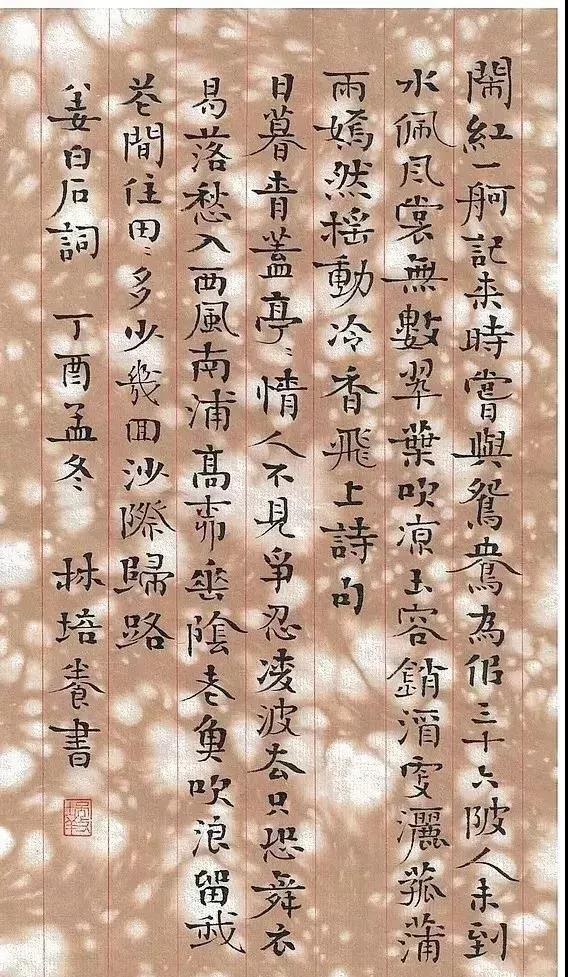 鬧紅一舸記来時嘗與鴛鴦為侣三十六陂人未到
水佩风裳無數翠葉吹凉玉容銷酒更灑菰蒲
雨嫣然摇動冷香飛上詩句
日暮青蓋亭〻情人不見爭忍凌波去只恐舞衣
易落愁入西風南浦高柳垂陰老魚吹浪留我
花間住田〻多少幾回沙際歸路
姜白石詞 丁酉孟冬 林培養書